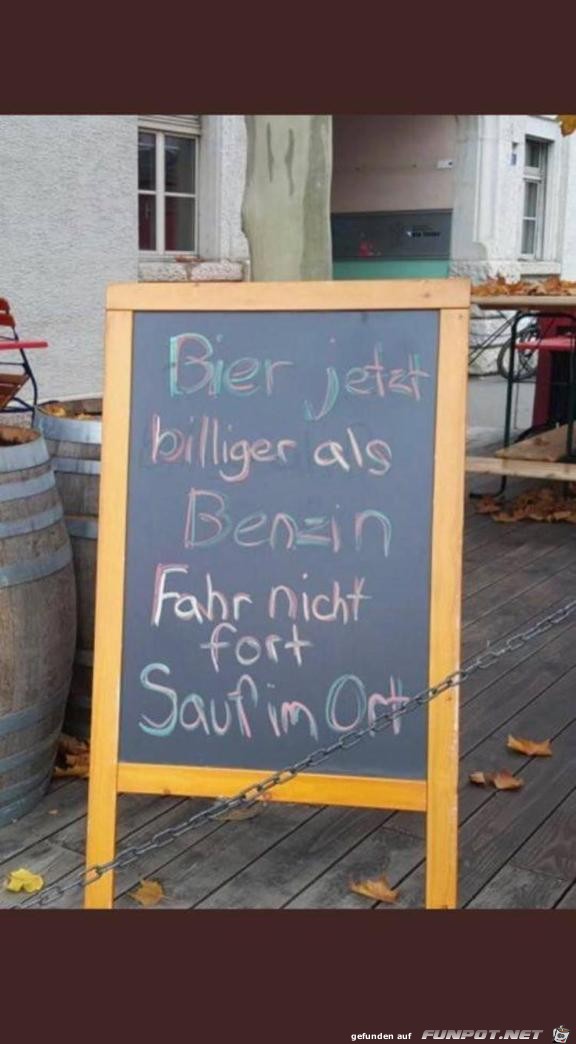 Bier jetzt
billiger als
Benzin
Fahr nicht
fort
Sauf im Ort
gefunden auf FUNPOT.NET